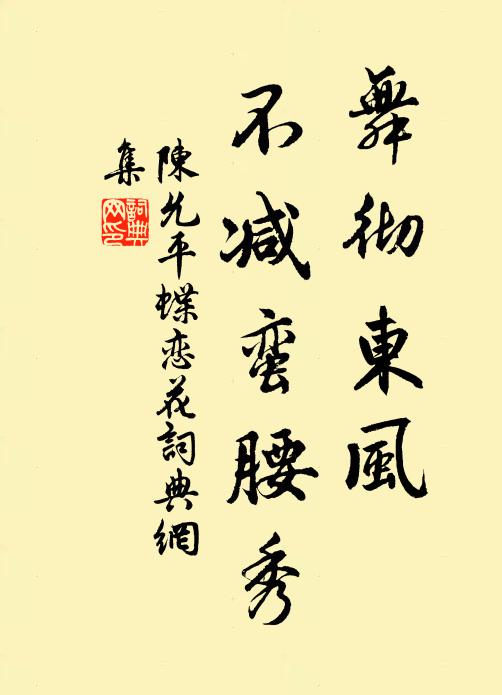 舞彻東風
不减蛮腰秀
陳允平蝶恋花詞典網
集
詞典网印